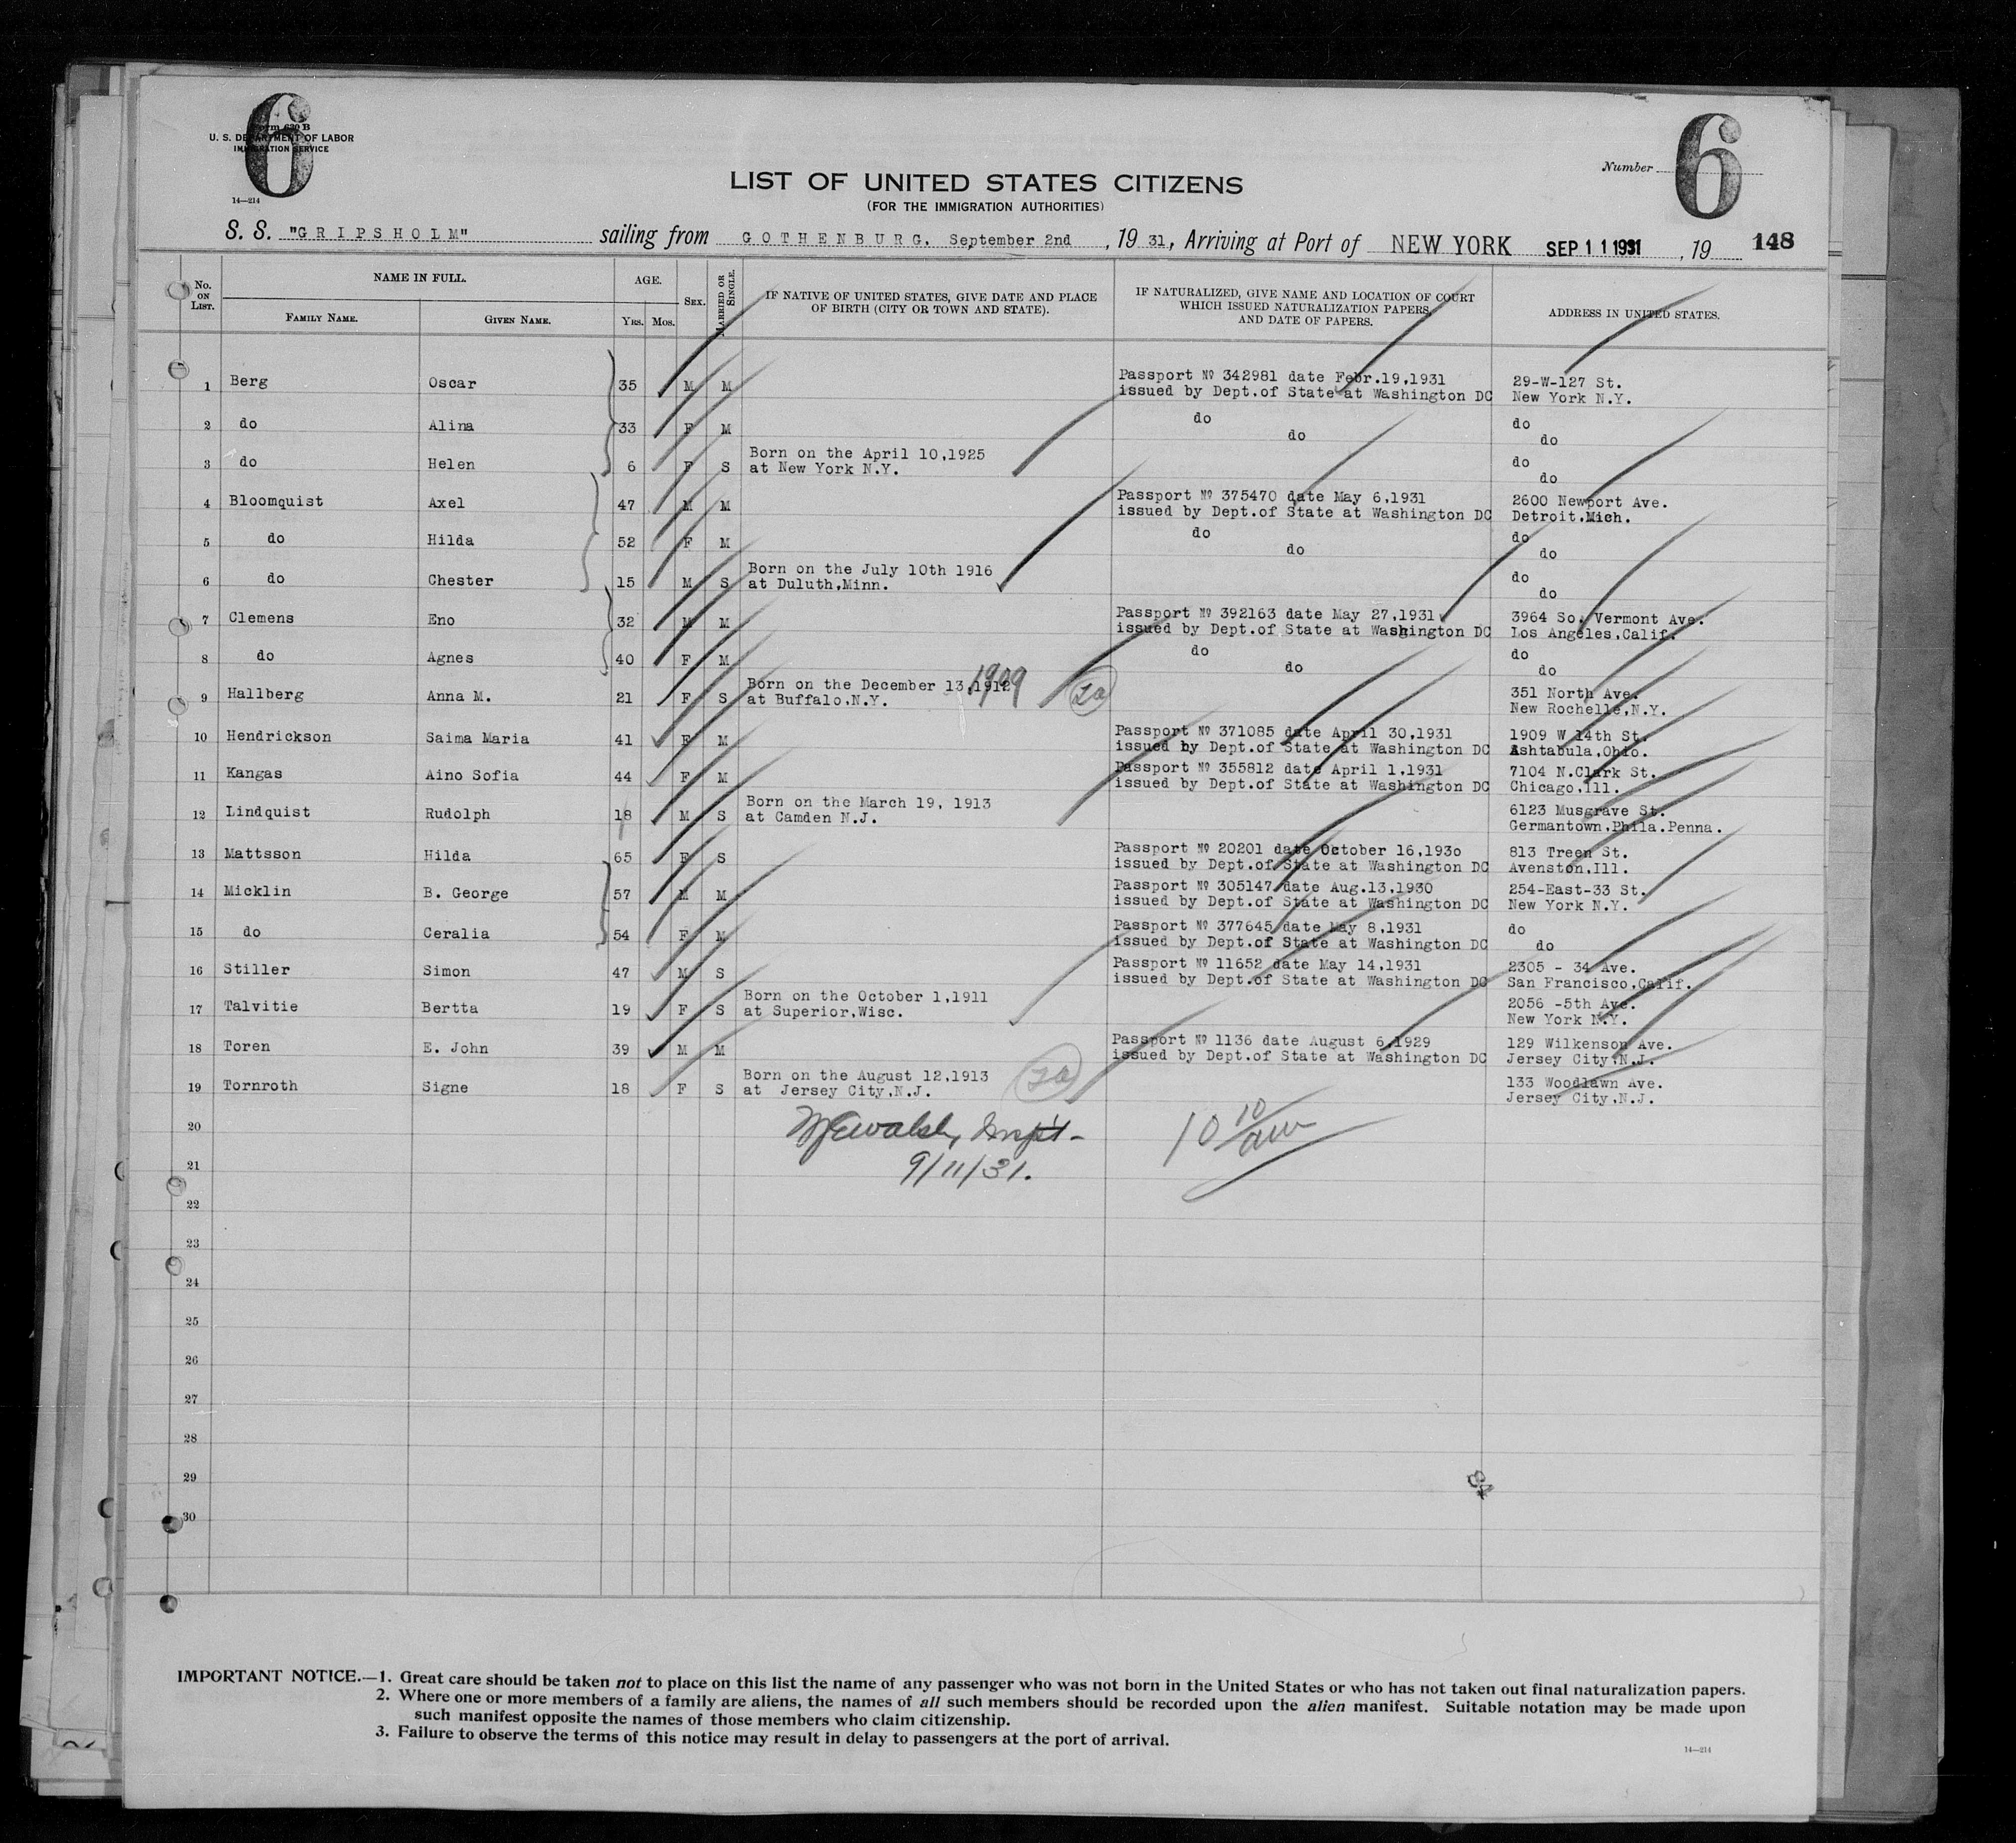 6
Form 630 B
U. S. DEPARTMENT OF LABOR
IMMIGRATION SERVICE
14—214
Number 6
LIST OF UNITED STATES CITIZENS
(FOR THE IMMIGRATION AUTHORITIES)
S. S. "GRIPSHOLM" sailing from GOTHENBURG, September 2nd, 1931, Arriving at Port of NEW YORK SEP 11 1931, 19 148
No. ON LIST. NAME IN FULL. AGE. SEX. MARRIED OR SINGLE. IF NATIVE OF UNITED STATES, GIVE DATE AND PLACE OF BIRTH (CITY OR TOWN AND STATE). IF NATURALIZED, GIVE NAME AND LOCATION OF COURT WHICH ISSUED NATURALIZATION PAPERS, AND DATE OF PAPERS. ADDRESS IN UNITED STATES.
FAMILY NAME. GIVEN NAME. YRS. MOS.
1 Berg Oscar 35 M M Passport № 342981 date Febr.19,1931 29-W-127 St.
issued by Dept.of State at Washington DC New York N.Y.
2 do Alina 33 F M do do do
do
3 do Helen 6 F S Born on the April 10,1925 do
at New York N.Y. do
4 Bloomquist Axel 47 M M Passport № 375470 date May 6,1931 2600 Newport Ave.
issued by Dept.of State at Washington DC Detroit.Mich.
5 do Hilda 52 F M do do do
do
6 do Chester 15 M S Born on the July 10th 1916 do
at Duluth,Minn. do
7 Clemens Eno 32 M M Passport № 392163 date May 27,1931 3964 So. Vermont Ave.
issued by Dept.of State at Washington DC Los Angeles,Calif.
8 do Agnes 40 F M do do do
do
9 Hallberg Anna M. 21 F S Born on the December 13,1912 1909 351 North Ave.
at Buffalo,N.Y. New Rochelle,N.Y.
10 Hendrickson Saima Maria 41 F M Passport № 371085 date April 30,1931 1909 W 14th St.
issued by Dept.of State at Washington DC Ashtabula,Ohio.
11 Kangas Aino Sofia 44 F M Passport № 355812 date April 1,1931 7104 N.Clark St.
issued by Dept.of State at Washington DC Chicago,Ill.
12 Lindquist Rudolph 18 M S Born on the March 19, 1913 6123 Musgrave St.
at Camden N.J. Germantown,Phila.Penna.
13 Mattsson Hilda 65 F S Passport № 20201 date October 16,1930 813 Treen St.
issued by Dept.of State at Washington DC Avenston,Ill.
14 Micklin B. George 57 M M Passport № 305147 date Aug.13,1930 254-East-33 St.
issued by Dept.of State at Washington DC New York N.Y.
15 do Ceralia 54 F M Passport № 377645 date May 8,1931 do
issued by Dept.of State at Washington DC do
16 Stiller Simon 47 M S Passport № 11652 date May 14,1931 2305 - 34 Ave.
issued by Dept.of State at Washington DC San Francisco,Calif.
17 Talvitie Bertta 19 F S Born on the October 1,1911 2056 -5th Ave.
at Superior,Wisc. New York N.Y.
18 Toren E. John 39 M M Passport № 1136 date August 6,1929 129 Wilkenson Ave.
issued by Dept.of State at Washington DC Jersey City,N.J.
19 Tornroth Signe 18 F S Born on the August 12,1913 133 Woodlawn Ave.
at Jersey City,N.J. Jersey City,N.J.
20 10 10 am
21 9/11/31.
22
23
24
25
26
27
28
29
30
IMPORTANT NOTICE.—1. Great care should be taken not to place on this list the name of any passenger who was not born in the United States or who has not taken out final naturalization papers.
2. Where one or more members of a family are aliens, the names of all such members should be recorded upon the alien manifest. Suitable notation may be made upon
such manifest opposite the names of those members who claim citizenship.
3. Failure to observe the terms of this notice may result in delay to passengers at the port of arrival.
14—214